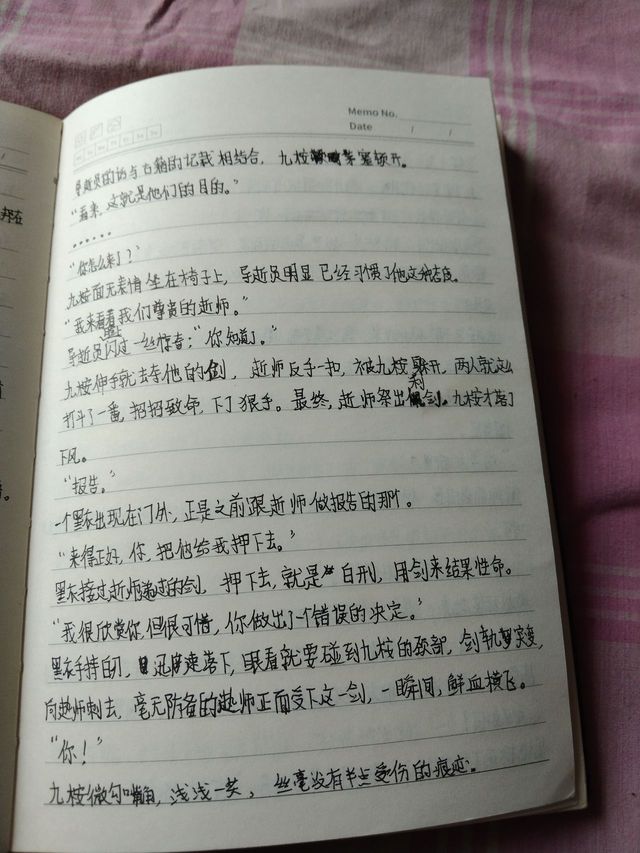 Memo No.
Date / /
导逝员的话与古籍的记载相结合，九桉顿时茅塞顿开。
“看来，这就是他们的目的。”
......
“你怎么来了？”
九桉面无表情坐在椅子上，导逝员明显已经习惯了他这种态度。
“我来看看我们尊贵的逝师。”
导逝员闪过一丝惊奇：“你知道了。”
九桉伸手就去夺他的剑，逝师反手一扣，被九桉躲开，两人就这么
打斗了一番，招招致命，下了狠手。最终，逝师祭出利剑。九桉才落了
下风。
“报告。”
一个黑衣出现在门外，正是之前跟逝师做报告的那个。
“来得正好，你，把他给我押下去。”
黑衣接过逝师递过的剑，押下去，就是 自刑，用剑来结果性命。
“我很欣赏你，但很可惜，你做出了一个错误的决定。”
黑衣手持的刀，迅速落下，眼看就要碰到九桉的颈部，剑轨突变，
向逝师刺去，毫无防备的逝师正面受下这一剑，一瞬间，鲜血横飞。
“你！”
九桉微勾嘴角，浅浅一笑，丝毫没有半点受伤的痕迹。